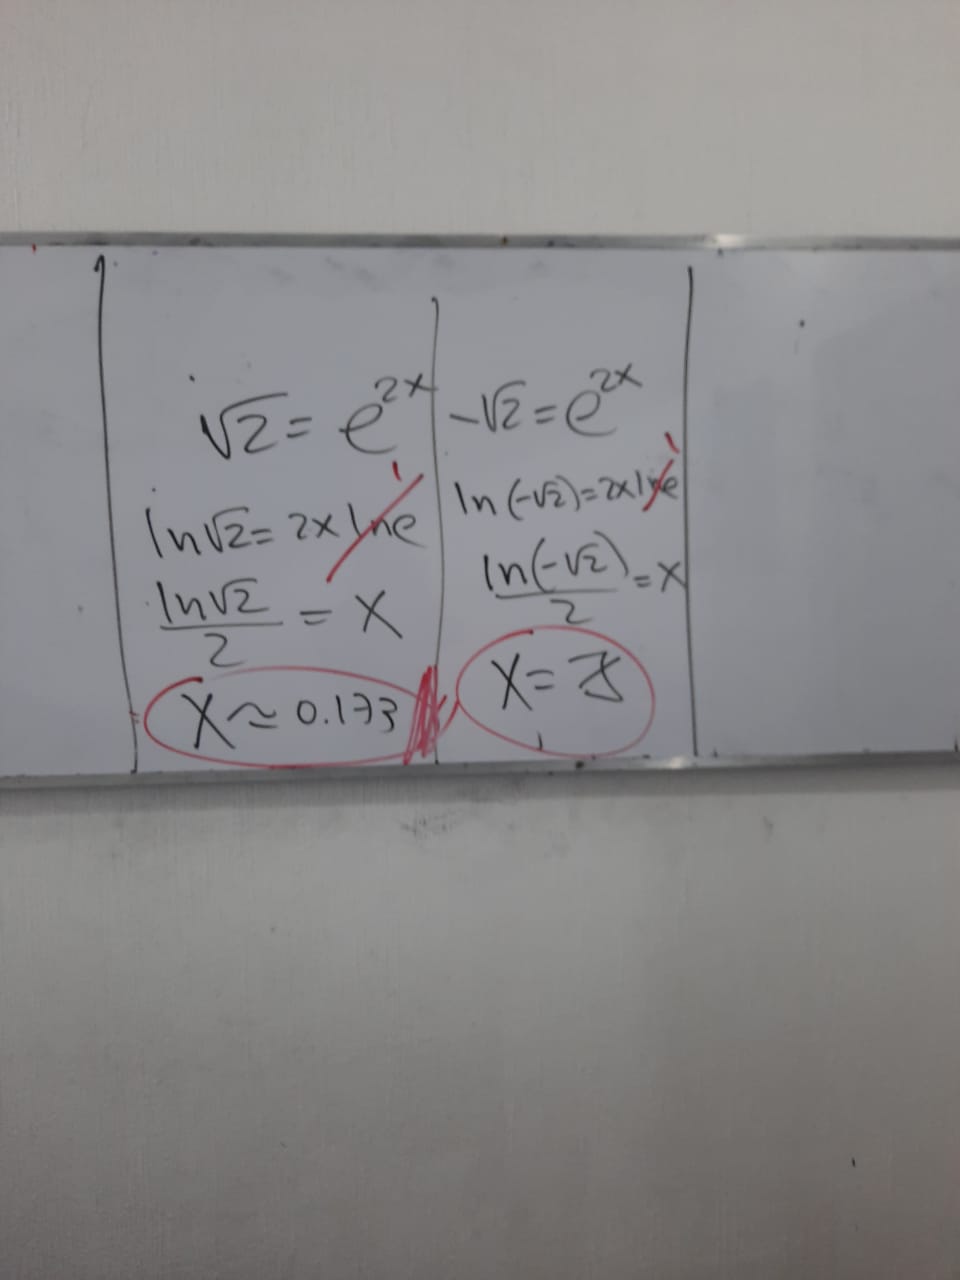 √2 = e^2x
ln√2 = 2x lne 1
ln√2/2 = x
x ≈ 0.173
-√2 = e^2x
ln(-√2) = 2x lne 1
ln(-√2)/2 = x
x =